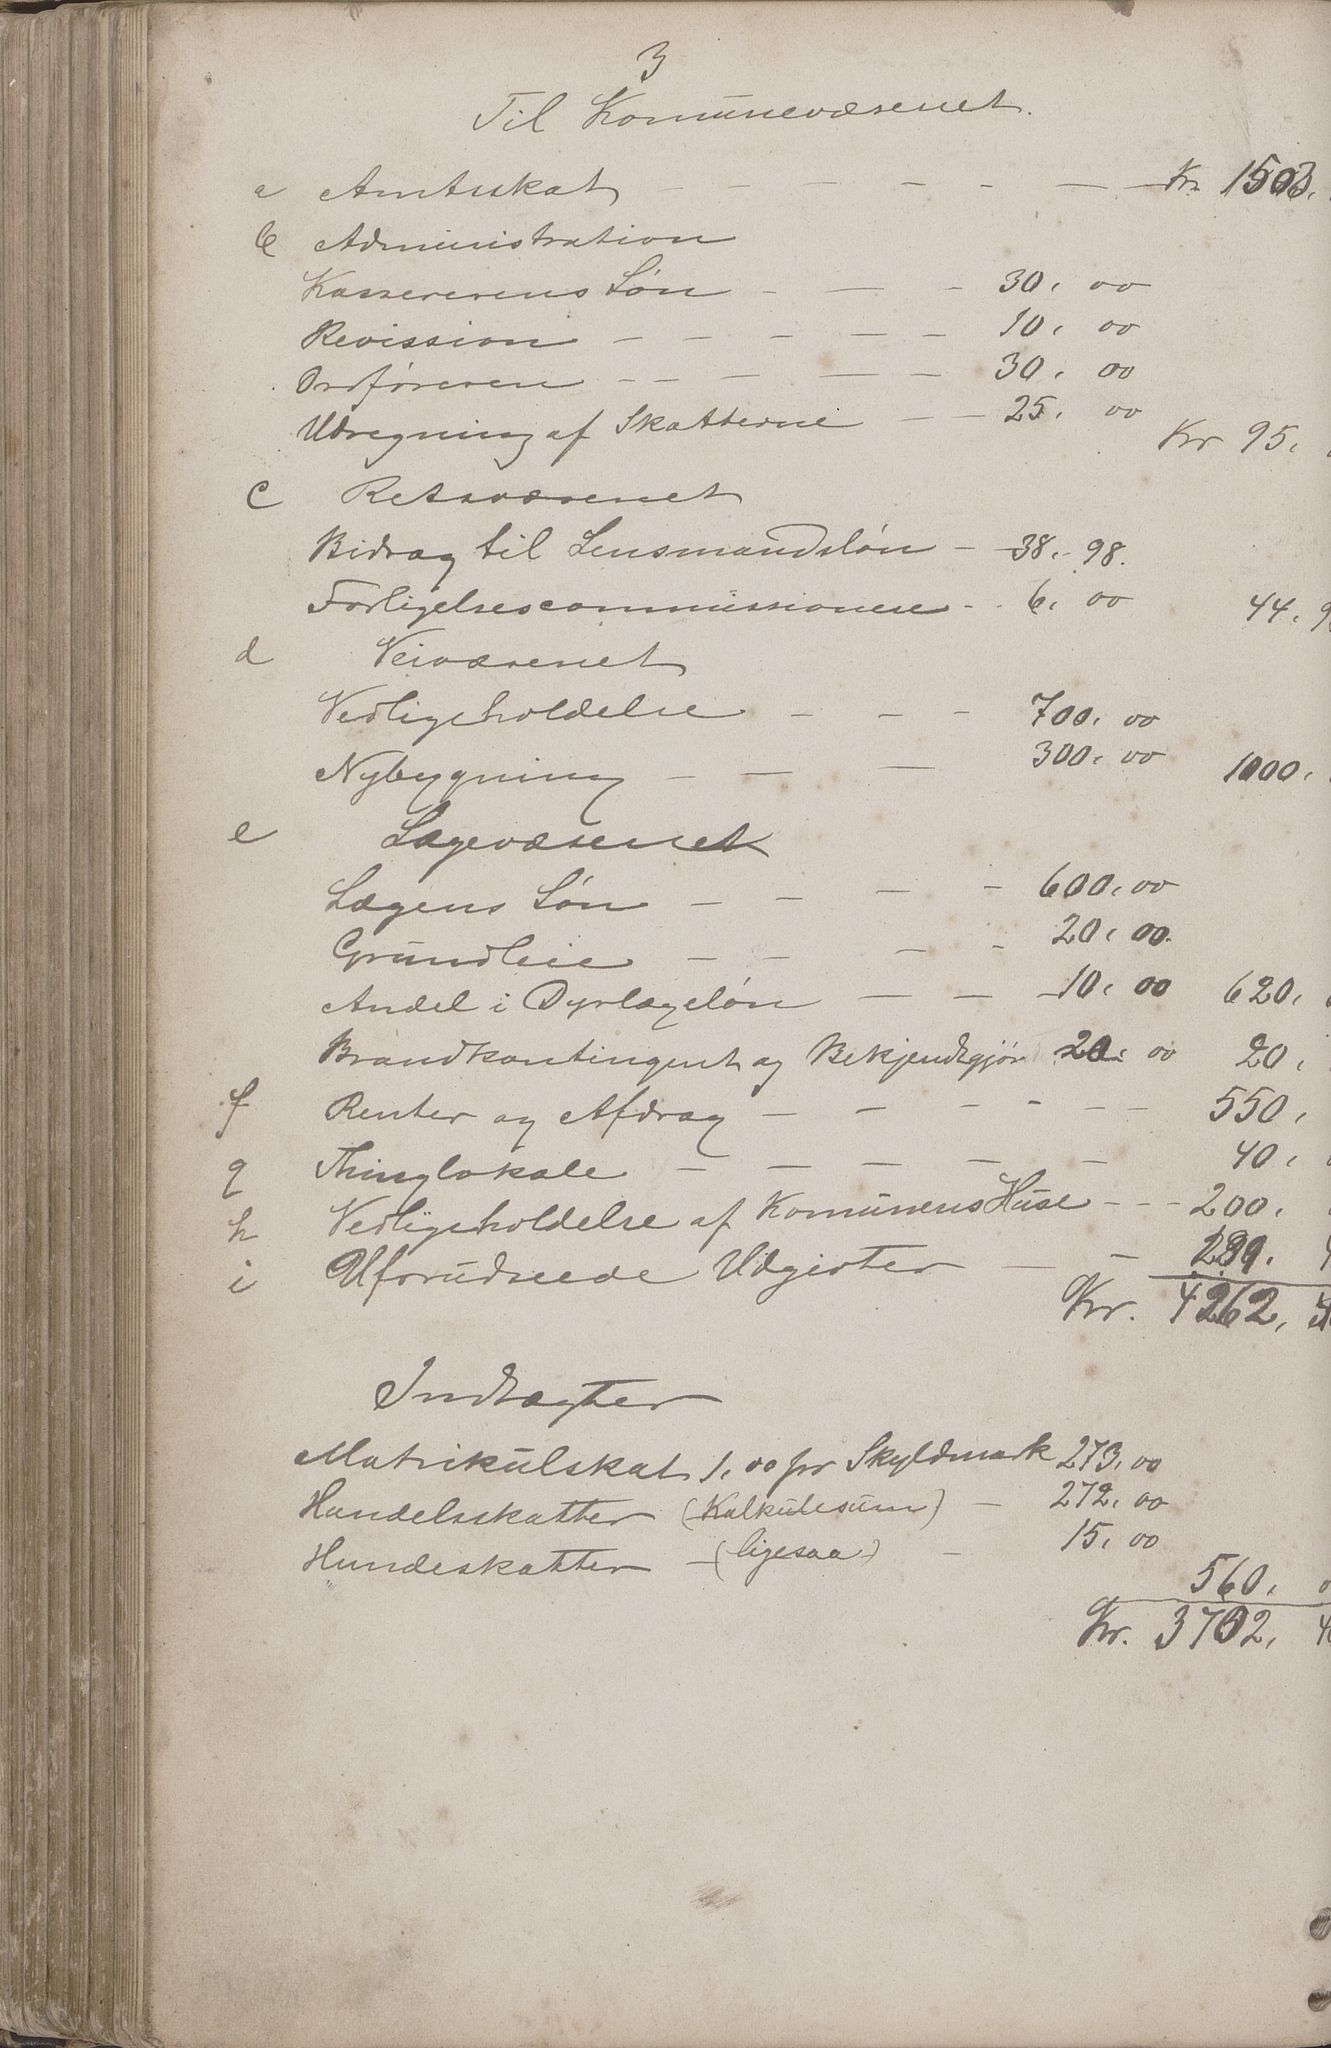 3
Til Komunevæsenet.
a Amtsskat - - - - - - - Kr. 1503.
b Administration
Kassererens Løn - - - 30. 00
Revission - - - - - - 10. 00
Ordføreren - - - - - 30. 00
Udregning af Skatterne - - 25. 00
Kr 95.
c Retsvæsenet
Bidrag til Lensmandsløn - 38. 98.
Forligelsescommissionere - - 6. 00 44. 9
d Veivæsenet
Vedligeholdelse - - - 700. 00
Nybygning - - - 300. 00 1000.
e Lægevæsenet
Lægens Løn - - - - 600. 00
Grundleie - - - - 20. 00.
Andel i Dyrlægeløn - - - 10. 00 620.
Brandkontingent og Bekjendtgjør 20. 00 20.
f Renter og Afdrag - - - - - - 550.
g Thinglokale - - - - - 40.
h Vedligeholdelse af Komunens Huse - - - 200.
i Uforudseede Udgivter - - 289. 4
Kr. 4262. 4
Indtægter
Matrikulskat 1. 00 pr Skyldmark 273. 00
Handelsskatter (Kalkulesum) - 272. 00
Hundeskatter - (ligesaa) - 15. 00
560. 0
Kr. 3702. 4